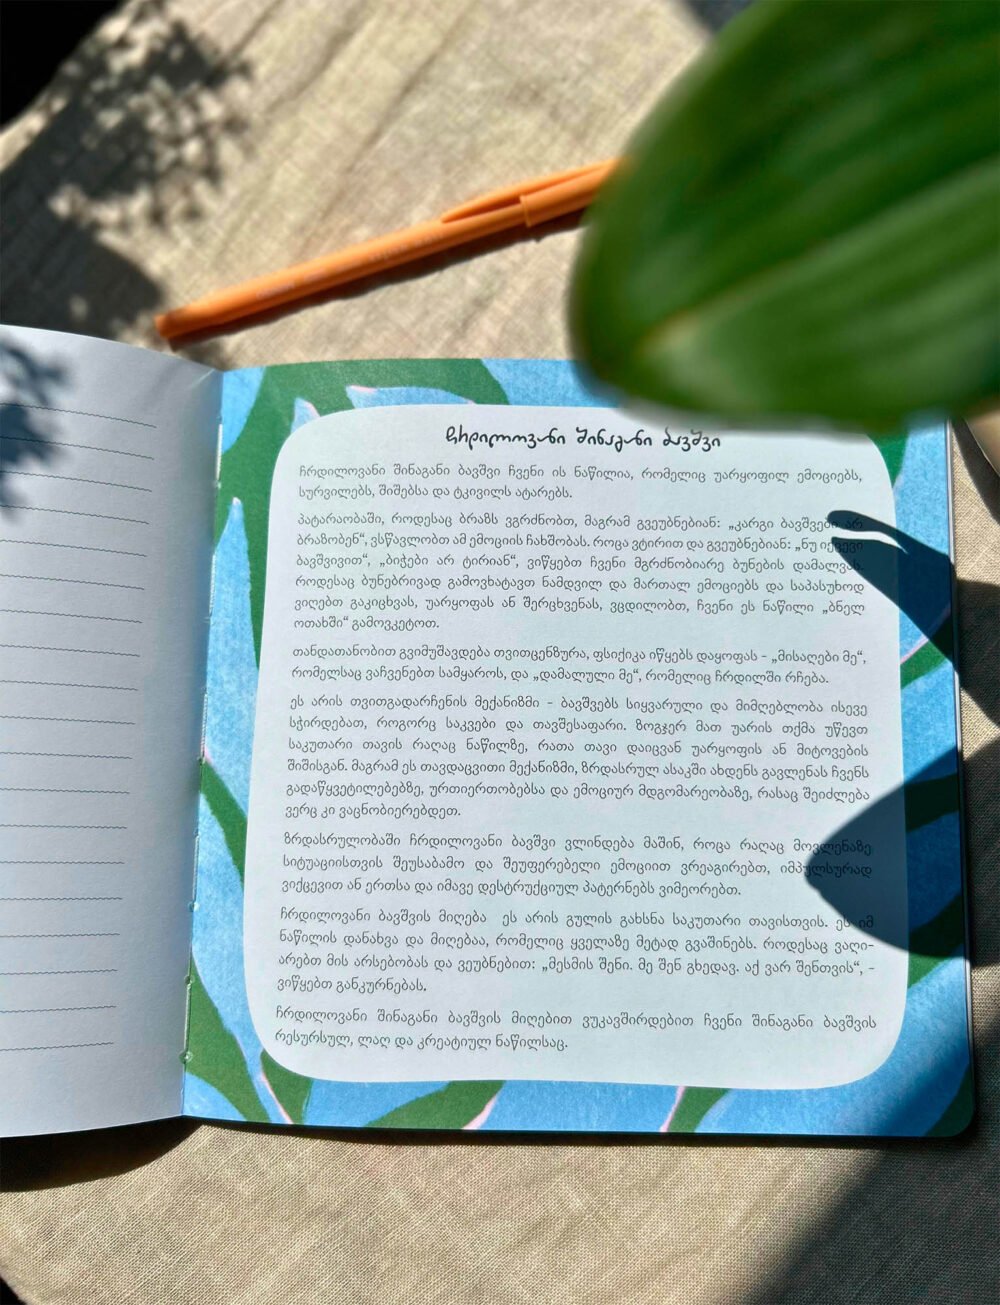 ჩრდილოვანი შინაგანი ბავშვი
ჩრდილოვანი შინაგანი ბავშვი ჩვენი ის ნაწილია, რომელიც უარყოფილ ემოციებს,
სურვილებს, შიშებსა და ტკივილს ატარებს.
პატარაობაში, როდესაც ბრაზს ვგრძნობთ, მაგრამ გვეუბნებიან: „კარგი ბავშვები არ
ბრაზობენ“, ვსწავლობთ ამ ემოციის ჩახშობას. როცა ვტირით და გვეუბნებიან: „ნუ იქცევი
ბავშვივით“, „ბიჭები არ ტირიან“, ვიწყებთ ჩვენი მგრძნობიარე ბუნების დამალვას.
როდესაც ბუნებრივად გამოვხატავთ ნამდვილ და მართალ ემოციებს და საპასუხოდ
ვიღებთ გაკიცხვას, უარყოფას ან შერცხვენას, ვცდილობთ, ჩვენი ეს ნაწილი „ბნელ
ოთახში“ გამოვკეტოთ.
თანდათანობით გვიმუშავდება თვითცენზურა, ფსიქიკა იწყებს დაყოფას - „მისაღები მე“,
რომელსაც ვაჩვენებთ სამყაროს, და „დამალული მე“, რომელიც ჩრდილში რჩება.
ეს არის თვითგადარჩენის მექანიზმი - ბავშვებს სიყვარული და მიმღებლობა ისევე
სჭირდებათ, როგორც საკვები და თავშესაფარი. ზოგჯერ მათ უარის თქმა უწევთ
საკუთარი თავის რაღაც ნაწილზე, რათა თავი დაიცვან უარყოფის ან მიტოვების
შიშისგან. მაგრამ ეს თავდაცვითი მექანიზმი, ზრდასრულ ასაკში ახდენს გავლენას ჩვენს
გადაწყვეტილებებზე, ურთიერთობებსა და ემოციურ მდგომარეობაზე, რასაც შეიძლება
ვერც კი ვაცნობიერებდეთ.
ზრდასრულობაში ჩრდილოვანი ბავშვი ვლინდება მაშინ, როცა რაღაც მოვლენაზე
სიტუაციისთვის შეუსაბამო და შეუფერებელი ემოციით ვრეაგირებთ, იმპულსურად
ვიქცევით ან ერთსა და იმავე დესტრუქციულ პატერნებს ვიმეორებთ.
ჩრდილოვანი ბავშვის მიღება ეს არის გულის გახსნა საკუთარი თავისთვის. ეს იმ
ნაწილის დანახვა და მიღებაა, რომელიც ყველაზე მეტად გვაშინებს. როდესაც ვაღი-
არებთ მის არსებობას და ვეუბნებით: „მესმის შენი. მე შენ გხედავ. აქ ვარ შენთვის“, -
ვიწყებთ განკურნებას.
ჩრდილოვანი შინაგანი ბავშვის მიღებით ვუკავშირდებით ჩვენი შინაგანი ბავშვის
რესურსულ, ლაღ და კრეატიულ ნაწილსაც.